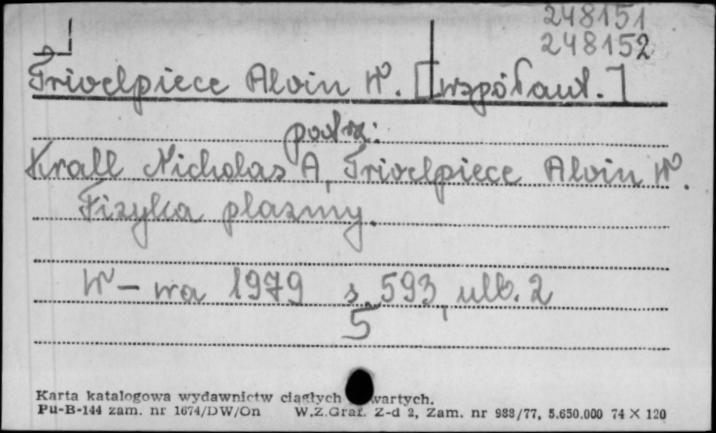 248151
248152
Trivelpiece Alvin W. [współaut.]
podrz:
Krall Nicholas A, Trivelpiece Alvin W.
Fizyka plazmy.
W-wa 1979 s. 593, ulb. 2
5
Karta katalogowa wydawnictw ciągłych wartych.
Pu-B-144 zam. nr 1674/DW/On W.Z.Graf. Z-d 2, Zam. nr 988/77, 5.650.000 74 X 120